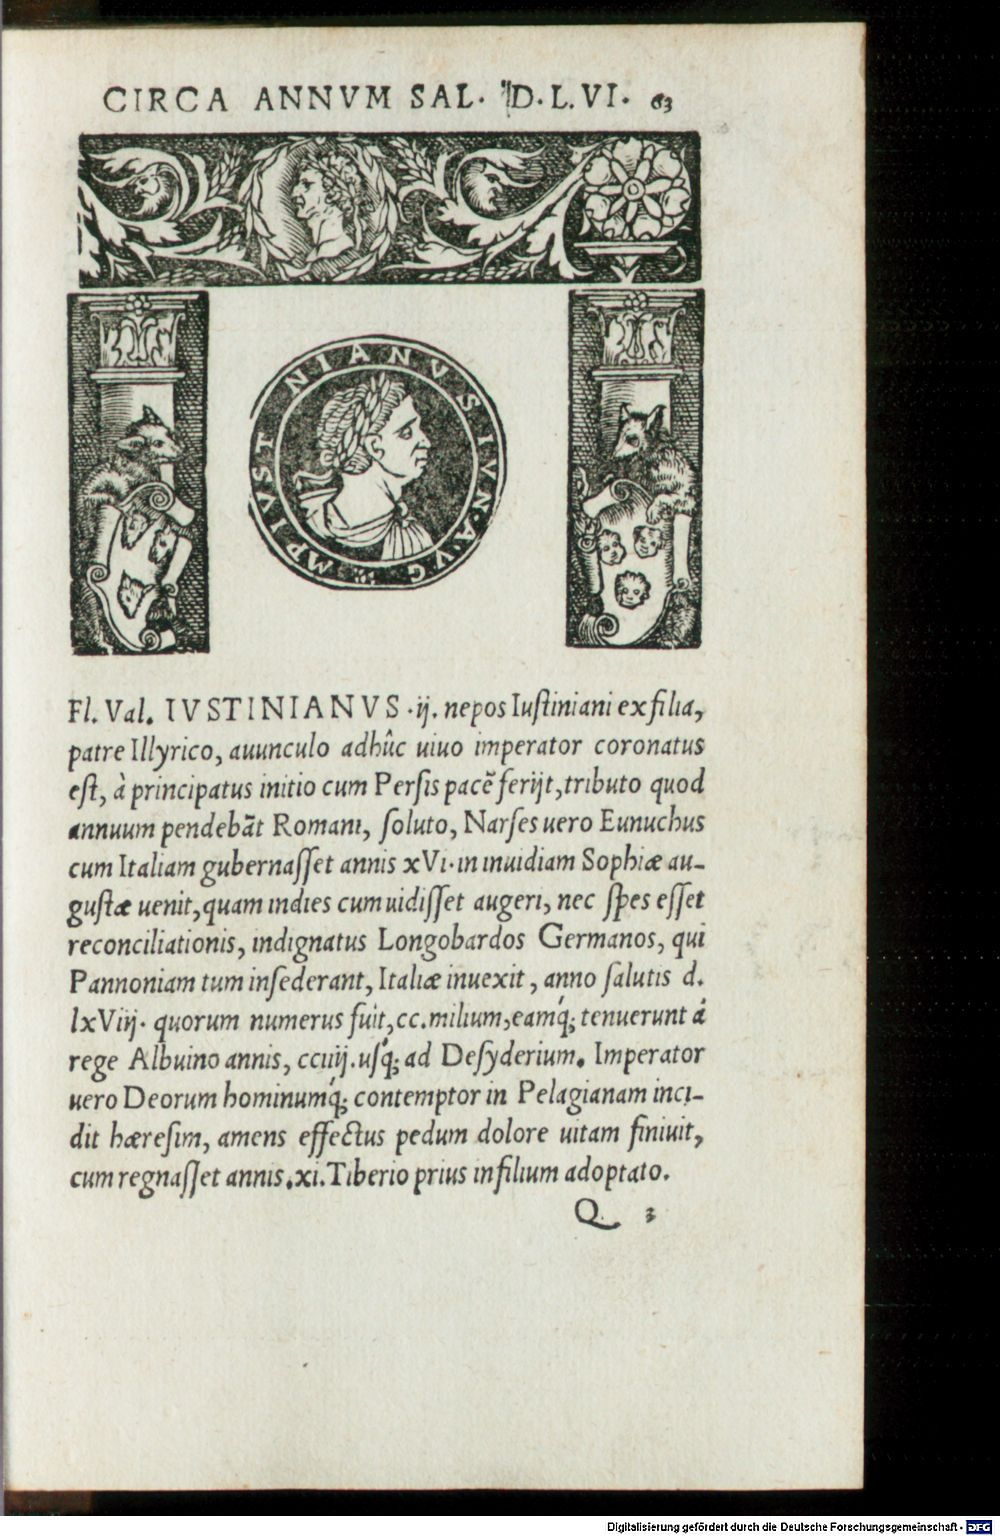 CIRCA ANNVM SAL. D.L.VI. 63
MP IVST NIANVS IVN. A.VG
Fl. Val. IVSTINIANVS .ij. nepos Iustiniani ex filia,
patre Illyrico, auunculo adhûc uiuo imperator coronatus
est, à principatus initio cum Persis pacē ferijt, tributo quod
annuum pendebãt Romani, soluto, Narses uero Eunuchus
cum Italiam gubernasset annis xVi. in inuidiam Sophiæ au-
gustæ uenit, quam indies cum uidisset augeri, nec spes esset
reconciliationis, indignatus Longobardos Germanos, qui
Pannoniam tum insederant, Italiæ inuexit, anno salutis d.
lxViij. quorum numerus fuit, cc. milium, eamq́; tenuerunt á
rege Albuino annis, cciiij. usq́; ad Desyderium. Imperator
uero Deorum hominumq́; contemptor in Pelagianam inci-
dit hæresim, amens effectus pedum dolore uitam finiuit,
cum regnasset annis .xi. Tiberio prius in filium adoptato.
Q 3
Digitalisierung gefördert durch die Deutsche Forschungsgemeinschaft - DFG